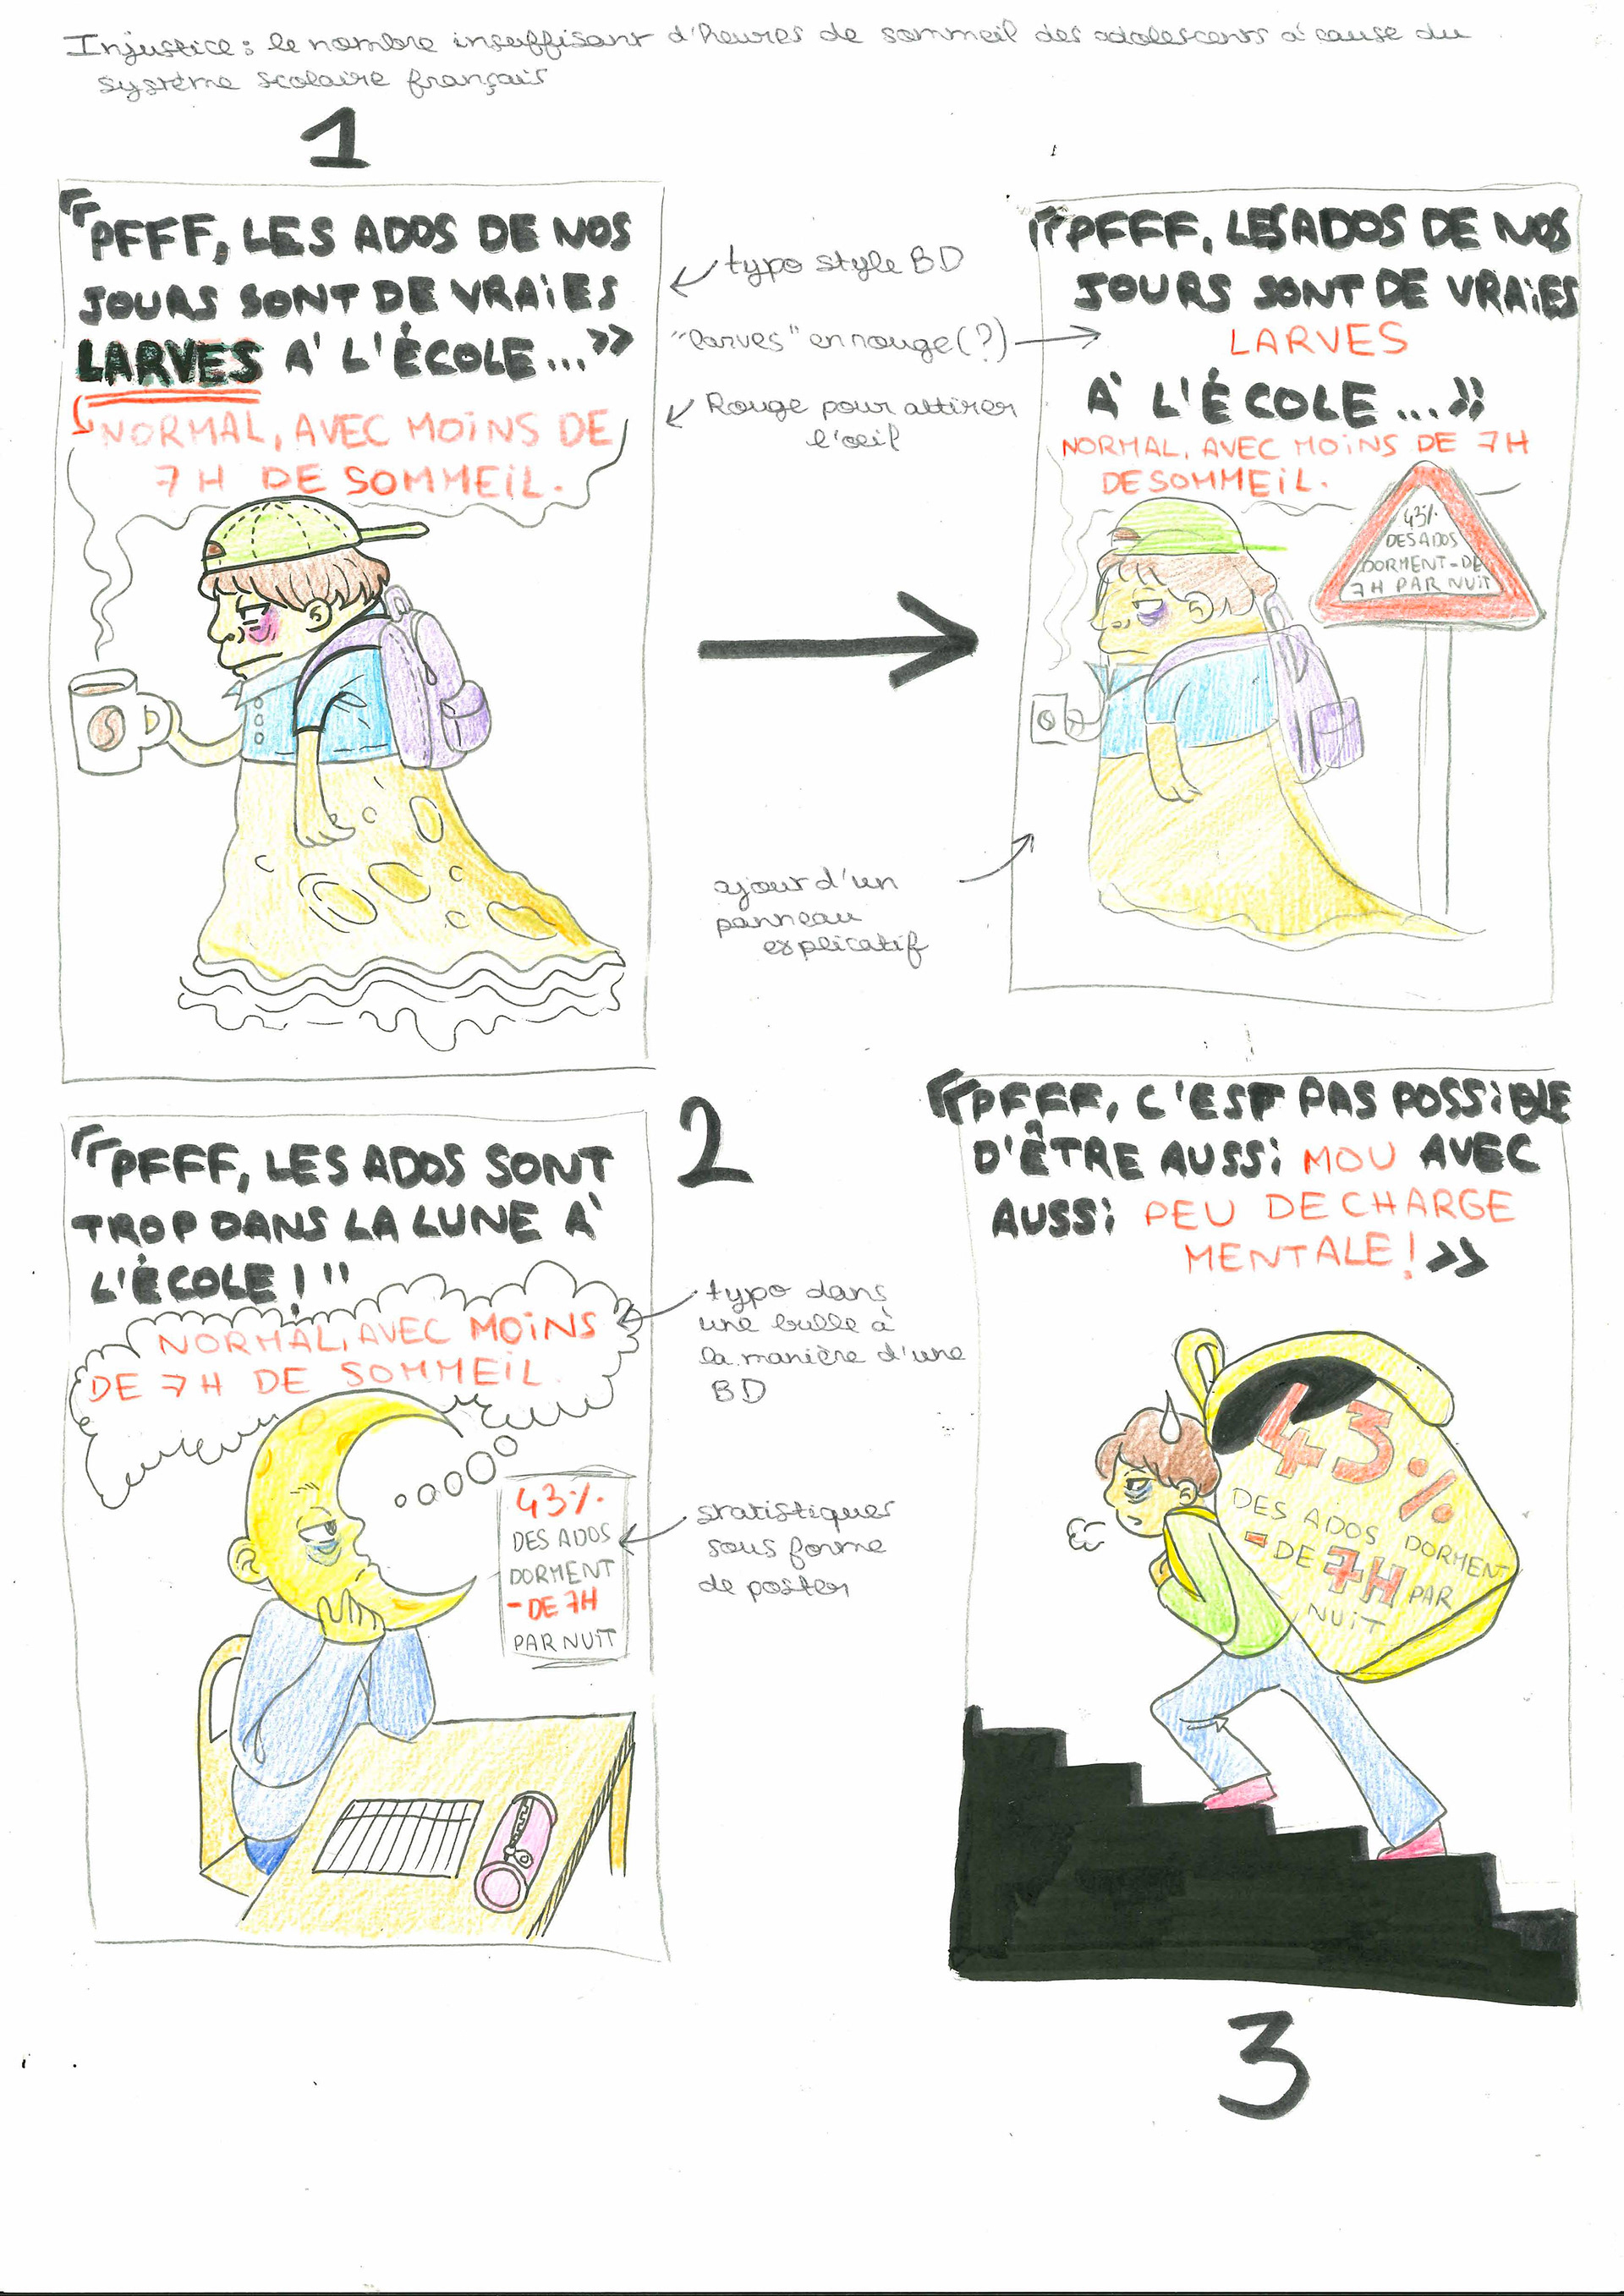 Injustice : le nombre insuffisant d'heures de sommeil des adolescents à cause du
système scolaire français
1
"PFFF, LES ADOS DE NOS
JOURS SONT DE VRAiES
LARVES À L'ÉCOLE... »
NORMAL, AVEC MOiNS DE
7H DE SOMMEiL.
typo style BD
"larves" en rouge (?)
Rouge pour attirer
l'oeil
"PFFF, LES ADOS DE NOS
JOURS SONT DE VRAiES
LARVES
À L'ÉCOLE ... »
NORMAL, AVEC MOiNS DE 7H
DE SOMMEiL.
43%
DES ADOS
DORMENT - DE
7H PAR NUiT
ajout d'un
panneau
explicatif
2
"PFFF, LES ADOS SONT
TROP DANS LA LUNE À
L'ÉCOLE ! "
NORMAL, AVEC MOiNS
DE 7H DE SOMMEiL.
typo dans
une bulle à
la manière d'une
BD
43%
DES ADOS
DORMENT
- DE 7H
PAR NUiT
statistiques
sous forme
de poster
«PFFF, C'EST PAS POSSiBLE
D'ÊTRE AUSSi MOU AVEC
AUSSi PEU DE CHARGE
MENTALE ! »
43%
DES ADOS DORMENT
- DE 7H PAR
NUiT
3